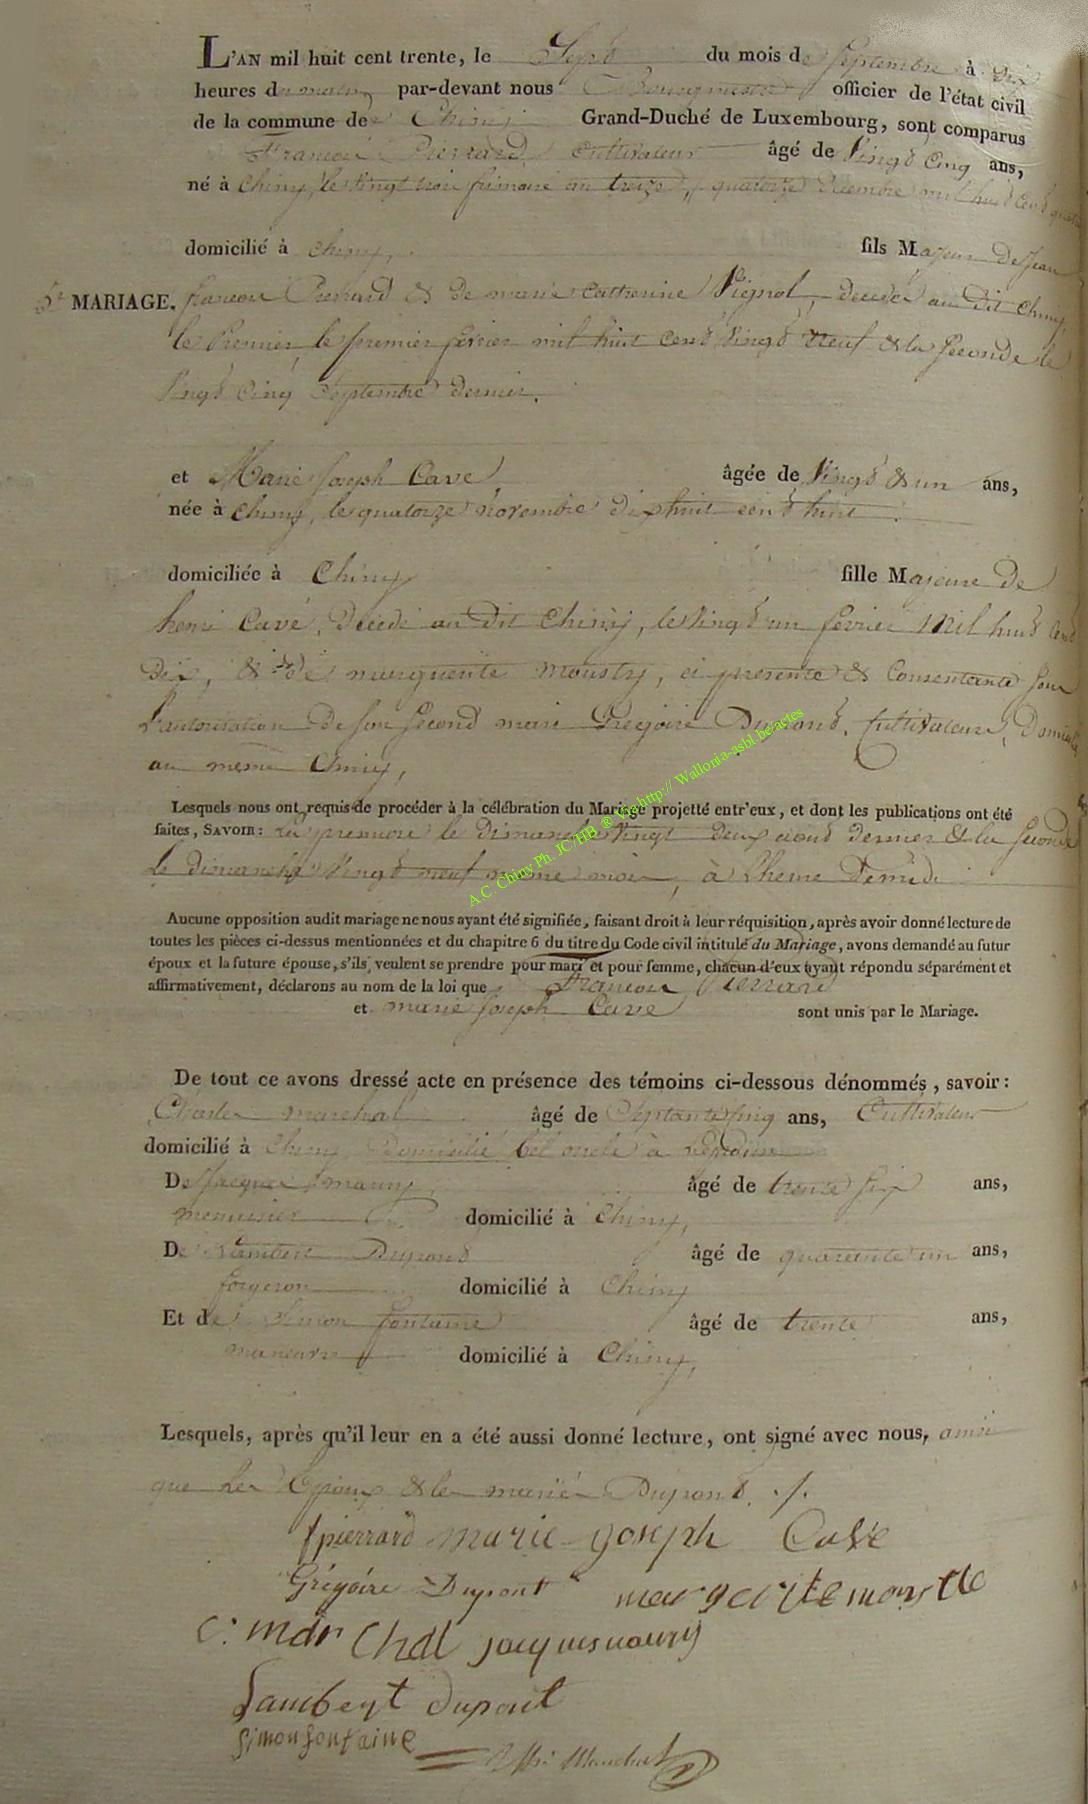 L'AN mil huit cent trente, le Sept du mois de Septembre à dix
heures du matin par-devant nous Bourgmestre officier de l'état civil
de la commune de Chiny Grand-Duché de Luxembourg, sont comparus
François Pierrard, Cultivateur âgé de vingt cinq ans,
né à Chiny, le vingt trois frimaire an treize, quatorze Décembre mil huit cent quatre
domicilié à Chiny, fils Majeur De Jean
MARIAGE. françois Pierrard & de marie Catherine Pignol, décédés au dit Chiny
le Premier, le premier février mil huit cent vingt neuf & la Seconde le
vingt cinq Septembre dernier.
et Marie Joseph Cavé âgée de vingt & un ans,
née à Chiny, le quatorze novembre dix huit cent huit.
domiciliée à Chiny fille Majeure de
henri Cavé, Décédé au dit Chiny, le vingt un février mil huit cent
dix, & de marguerite mousty, ci présente & Consentante sous
l'autorisation De son Second mari Grégoire Dupont, Cultivateur, Domicilié
au même Chiny,
Lesquels nous ont requis de procéder à la célébration du Mariage projetté entr'eux, et dont les publications ont été
faites, SAVOIR: La première le dimanche vingt deux août dernier & la seconde
le dimanche vingt neuf même mois, à l'heure De midi
Aucune opposition audit mariage ne nous ayant été signifiée, faisant droit à leur réquisition, après avoir donné lecture de
toutes les pièces ci-dessus mentionnées et du chapitre 6 du titre du Code civil intitulé du Mariage, avons demandé au futur
époux et la future épouse, s'ils veulent se prendre pour mari et pour femme, chacun d'eux ayant répondu séparément et
affirmativement, déclarons au nom de la loi que François Pierrard
et marie Joseph Cavé sont unis par le Mariage.
De tout ce avons dressé acte en présence des témoins ci-dessous dénommés, savoir:
Charles marchal âgé de Septante cinq ans, Cultivateur
domicilié à Chiny, Domicilié bel oncle à
De Jacques maury âgé de trente six ans,
menuisier domicilié à Chiny,
De Lambert Dupont âgé de quarante un ans,
forgeron domicilié à Chiny
Et de Simon fontaine âgé de trente ans,
domicilié à Chiny,
Lesquels, après qu'il leur en a été aussi donné lecture, ont signé avec nous, ainsi
que les Époux & les mariés Dupont ./.
f pierrard marie joseph Cave
Grégoire Dupont
jacques maury
Lambert dupont
Simon fontaine
A.C. Chiny Ph. JC/HB ® Via http:// Wallonia-asbl.be/actes